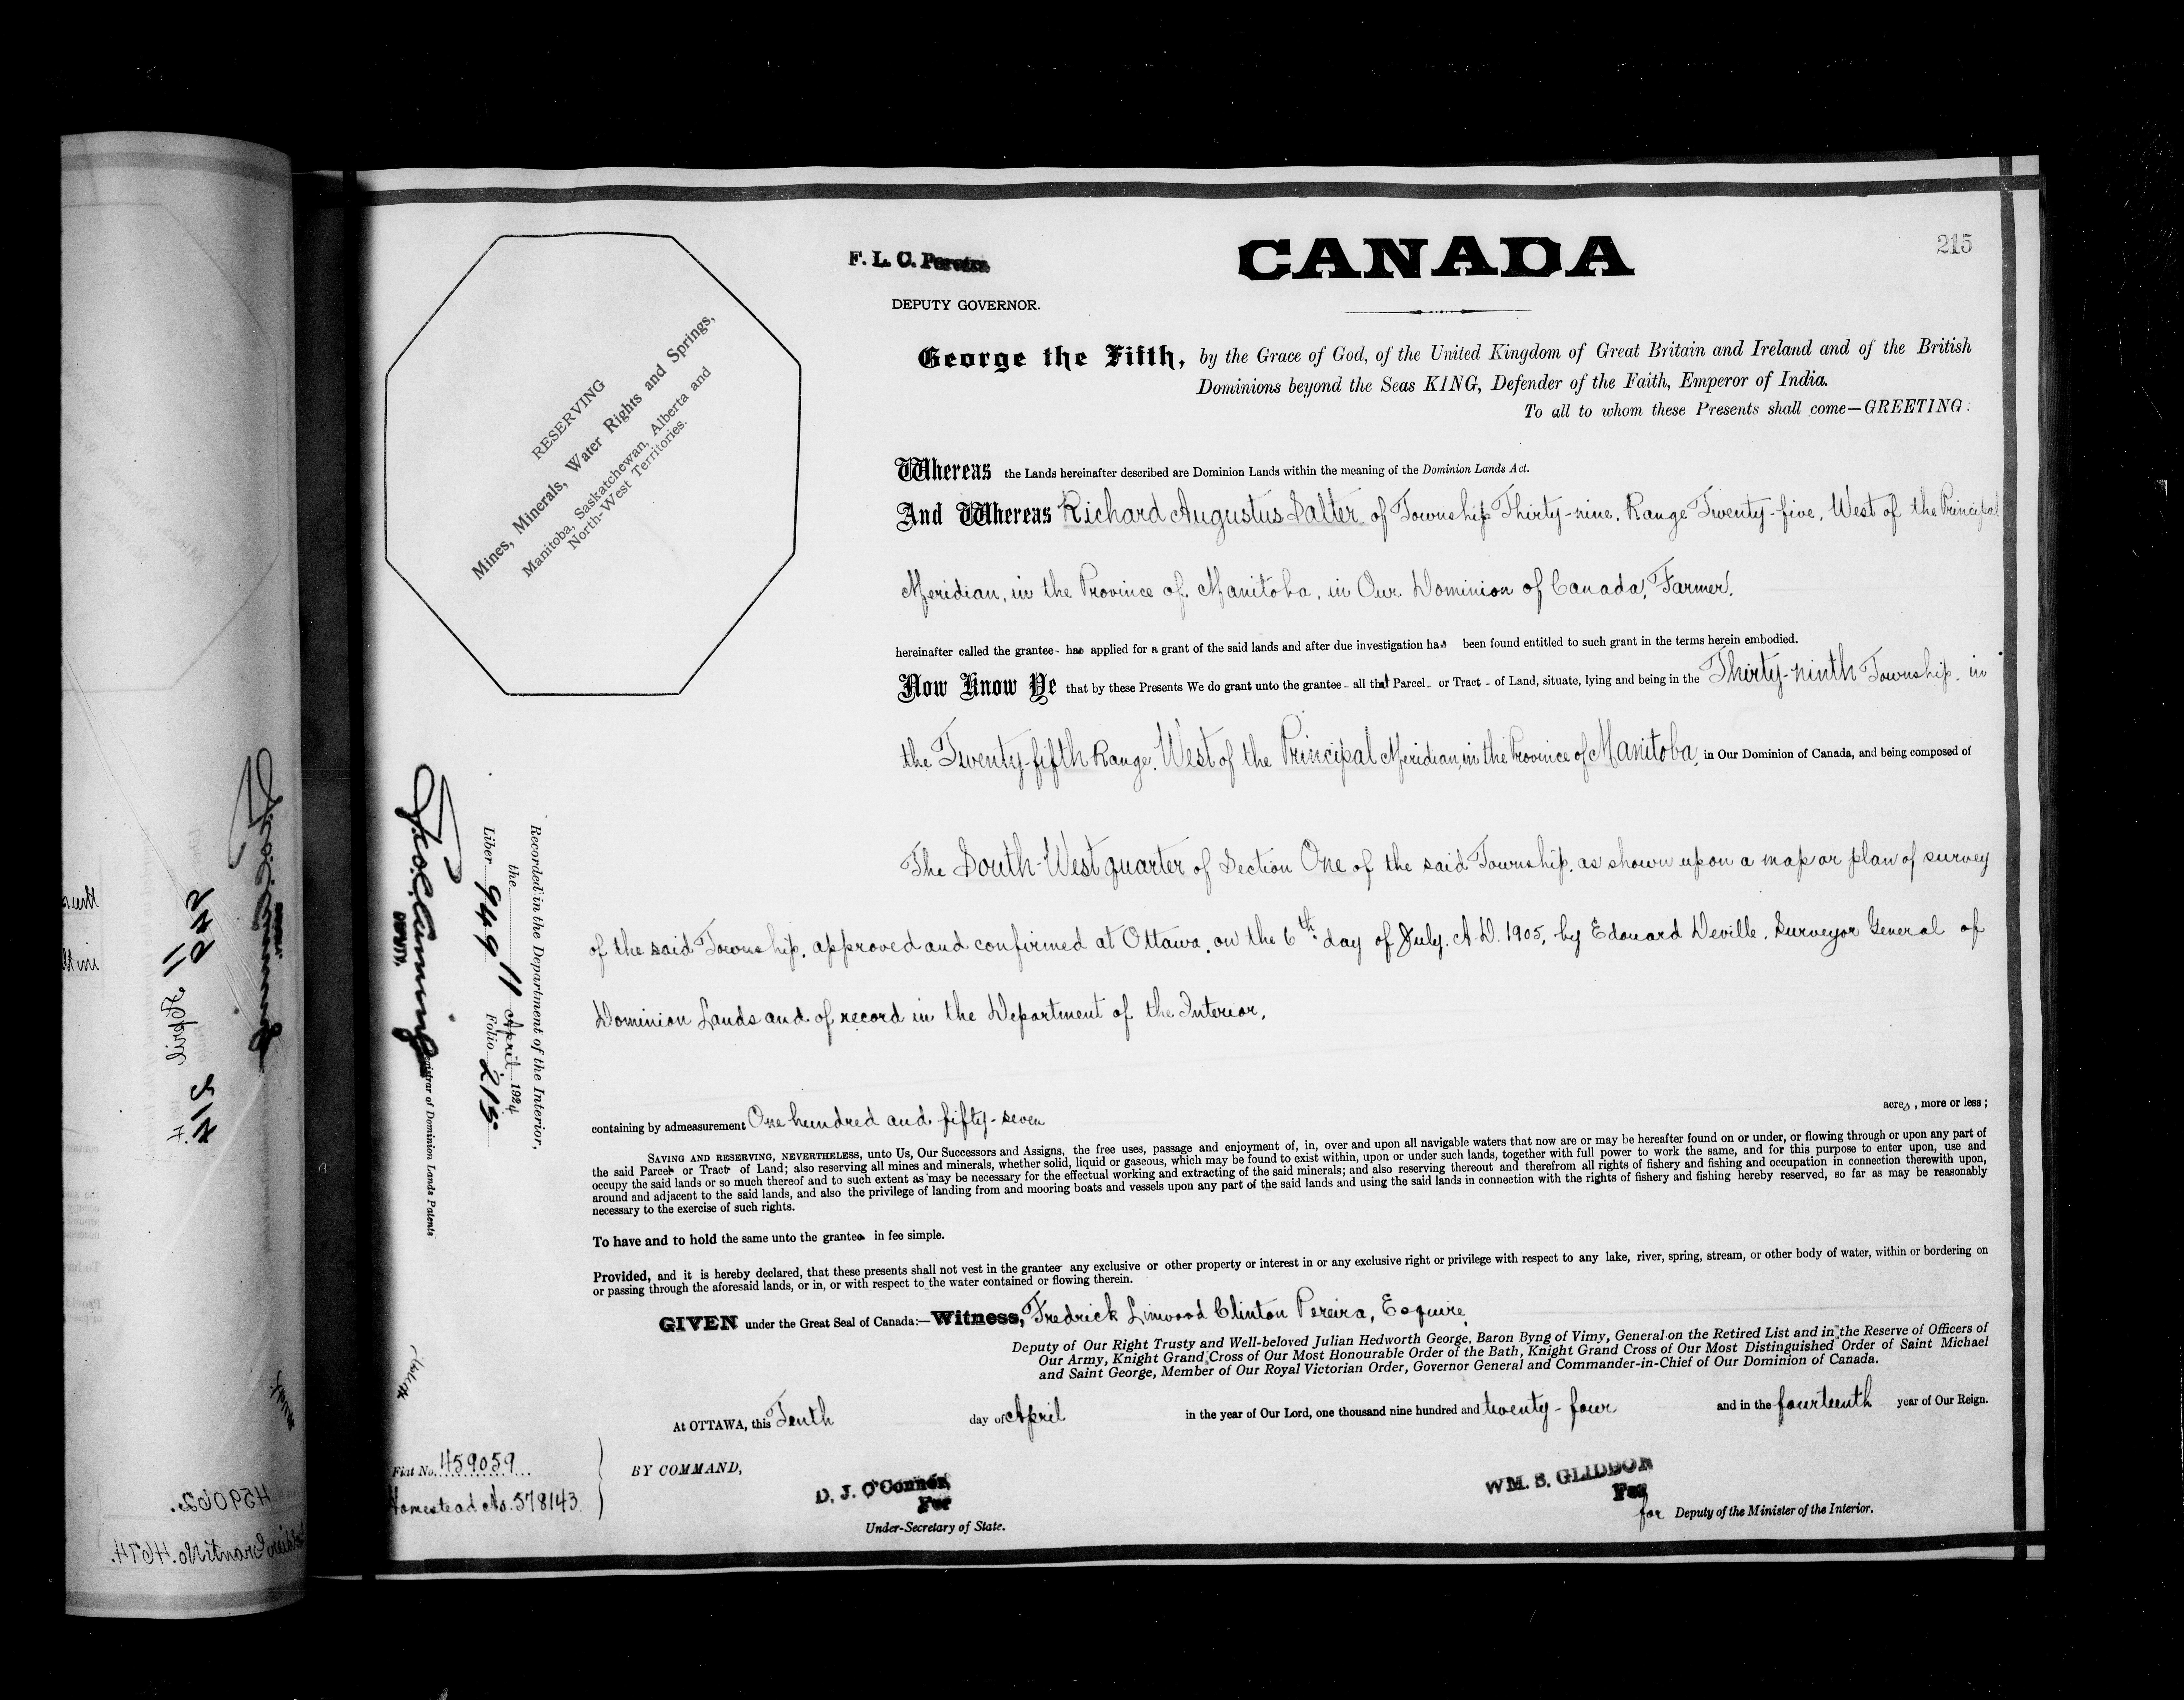 215
F. L. C. Pereira
DEPUTY GOVERNOR.
CANADA
RESERVING
Mines, Minerals, Water Rights and Springs,
Manitoba, Saskatchewan, Alberta and
North-West Territories.
George the Fifth, by the Grace of God, of the United Kingdom of Great Britain and Ireland and of the British
Dominions beyond the Seas KING, Defender of the Faith, Emperor of India.
To all to whom these Presents shall come—GREETING:
Whereas the Lands hereinafter described are Dominion Lands within the meaning of the Dominion Lands Act.
And Whereas Richard Augustus Salter of Township Thirty-nine, Range Twenty-five, West of the Principal
Meridian, in the Province of Manitoba, in Our Dominion of Canada, Farmer,
hereinafter called the grantee - has applied for a grant of the said lands and after due investigation has been found entitled to such grant in the terms herein embodied.
Now Know Ye that by these Presents We do grant unto the grantee - all that Parcel - or Tract - of Land, situate, lying and being in the Thirty-ninth Township, in
the Twenty-fifth Range, West of the Principal Meridian, in the Province of Manitoba, in Our Dominion of Canada, and being composed of
The South-West quarter of Section One of the said Township, as shown upon a map or plan of survey
of the said Township, approved and confirmed at Ottawa, on the 6th day of July, A.D. 1905, by Edouard Deville, Surveyor General of
Dominion Lands and of record in the Department of the Interior,
containing by admeasurement One hundred and fifty-seven acres, more or less;
SAVING AND RESERVING, NEVERTHELESS, unto Us, Our Successors and Assigns, the free uses, passage and enjoyment of, in, over and upon all navigable waters that now are or may be hereafter found on or under, or flowing through or upon any part of
the said Parcel or Tract of Land; also reserving all mines and minerals, whether solid, liquid or gaseous, which may be found to exist within, upon or under such lands, together with full power to work the same, and for this purpose to enter upon, use and
occupy the said lands or so much thereof and to such extent as may be necessary for the effectual working and extracting of the said minerals; and also reserving thereout and therefrom all rights of fishery and fishing and occupation in connection therewith upon,
around and adjacent to the said lands, and also the privilege of landing from and mooring boats and vessels upon any part of the said lands and using the said lands in connection with the rights of fishery and fishing hereby reserved, so far as may be reasonably
necessary to the exercise of such rights.
To have and to hold the same unto the grantee in fee simple.
Provided, and it is hereby declared, that these presents shall not vest in the grantee any exclusive or other property or interest in or any exclusive right or privilege with respect to any lake, river, spring, stream, or other body of water, within or bordering on
or passing through the aforesaid lands, or in, or with respect to the water contained or flowing therein.
GIVEN under the Great Seal of Canada:—Witness, Fredrick Linwood Clinton Pereira, Esquire,
Deputy of Our Right Trusty and Well-beloved Julian Hedworth George, Baron Byng of Vimy, General on the Retired List and in the Reserve of Officers of
Our Army, Knight Grand Cross of Our Most Honourable Order of the Bath, Knight Grand Cross of Our Most Distinguished Order of Saint Michael
and Saint George, Member of Our Royal Victorian Order, Governor General and Commander-in-Chief of Our Dominion of Canada.
At OTTAWA, this Tenth day of April in the year of Our Lord, one thousand nine hundred and twenty-four and in the fourteenth year of Our Reign.
BY COMMAND,
D. J. O'Connor
For
Under-Secretary of State.
WM. S. GLIDDON
For
for Deputy of the Minister of the Interior.
Fiat No. 459059
Homestead No. 578143
Recorded in the Department of the Interior,
the 11 April 1924
Liber 949 Folio 215
DEPUTY,
Registrar of Dominion Lands Patents
11 April
459062.
Soldier Grant No. 4674.